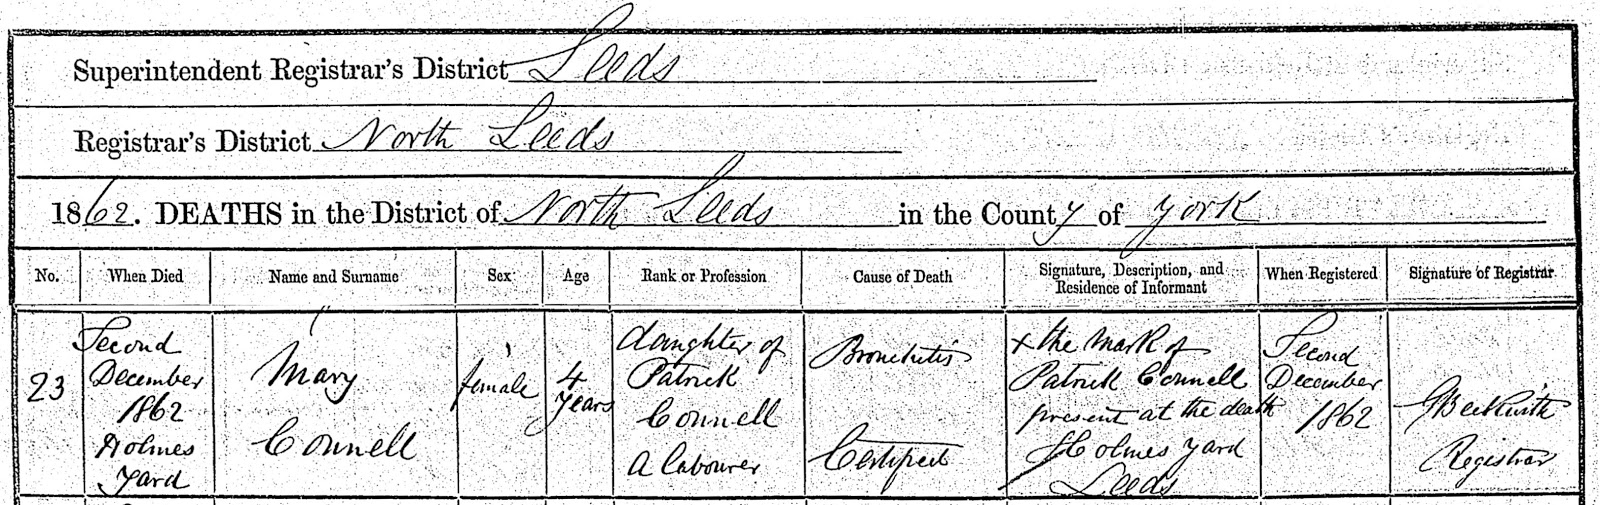 Superintendent Registrar's District Leeds
Registrar's District North Leeds
1862. DEATHS in the District of North Leeds in the County of York
No.
When Died
Name and Surname
Sex
Age
Rank or Profession
Cause of Death
Signature, Description, and
Residence of Informant
When Registered
Signature of Registrar
23
Second
December
1862
Holmes
Yard
Mary
Connell
female
4
years
daughter of
Patrick
Connell
a labourer
Bronchitis
Certified
x the mark of
Patrick Connell
present at the death
Holmes Yard
Leeds
Second
December
1862
Beckwith
Registrar